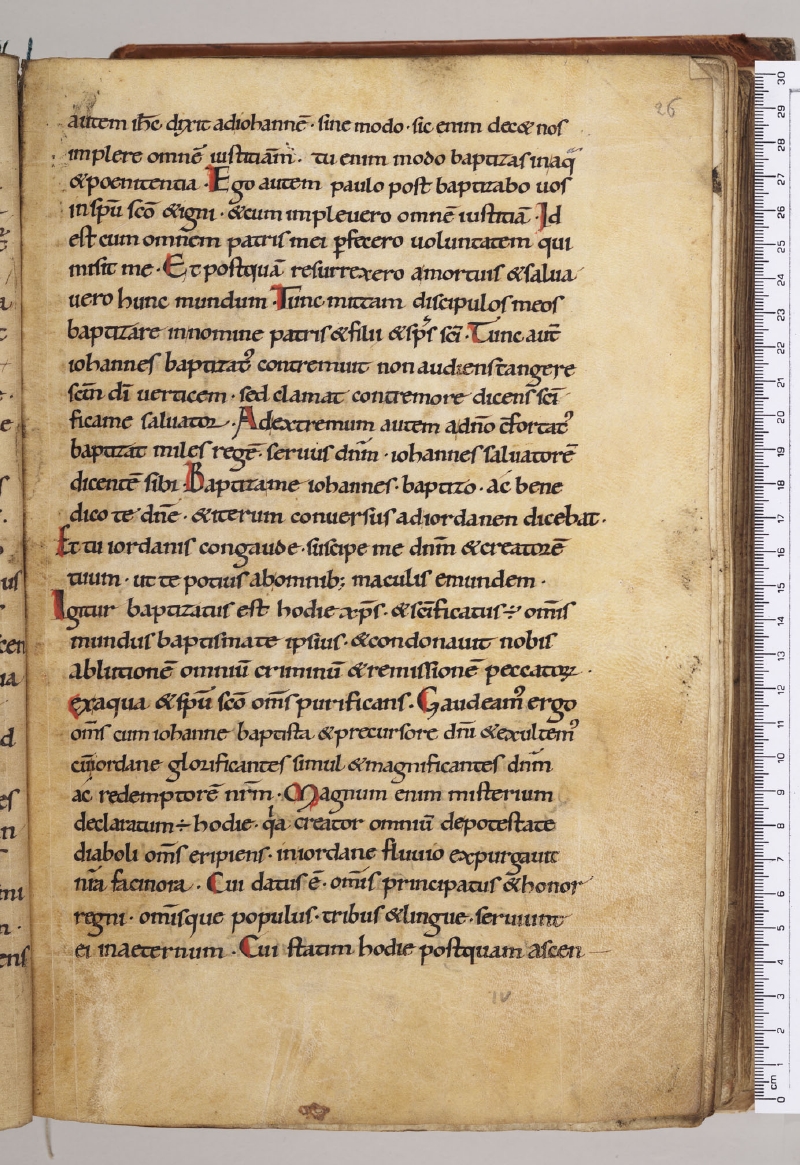 26
autem ihc̄ dixit adiohannē· sine modo· sic enim dec& nos
implere omnē iustitiam̄· tu enim modo baptizas inaq̄
&poenitentia· Ego autem paulo post baptizabo uos
inspū scō &igni· &cum impleuero omnē iustitiā· Id
est cum omnem patris mei pfecero uoluntatem qui
misit me· Et postquā resurrexero amortuis &salua
uero hunc mundum· Tunc mittam discipulos meos
baptizare innomine patris &filii &spr̄s sc̄i· Tunc aut̄
iohannes baptizat᾽ contremuit non audiens tangere
sc̄m dī uerticem· sed clamat contremore dicens sc̄i
ficame saluator· Adextremum autem adn̄o c̄fortat᾽
baptizat miles regē· seruus dn̄m· iohannes saluatorē
dicentē sibi· Baptizame iohannes· baptizo· ac bene
dico te dn̄e· &iterum conuersus adiordanen dicebat·
Et tu iordanis congaude· suscipe me dn̄m &creatorē
tuum· ut te potius abomnib; maculis emundem·
Igitur baptizatus est hodie xp̄s· &sc̄ificatus ÷ om̄s
mundus baptismate ipsius· &condonauit nobis
ablutionē omniū criminū &remissionē peccatoꝝ·
exaqua &spū scō om̄s purificans· Gaudeam᾽ ergo
om̄s cum iohanne baptista &precursore dn̄i &exultem᾽
cūiordane glorificantes simul &magnificantes dn̄m
ac redemptorē nr̄m· Magnum enim misterium
declaratum ÷ hodie· qa creator omniū depotestate
diaboli om̄s eripiens· iniordane fluuio expurgauit
nr̄a facinora· Cui datus ē· omīs principatus &honor
regni· omīsque populus· tribus &lingue· seruiunt
ei inaeternum· Cui statim hodie postquam ascen
IV